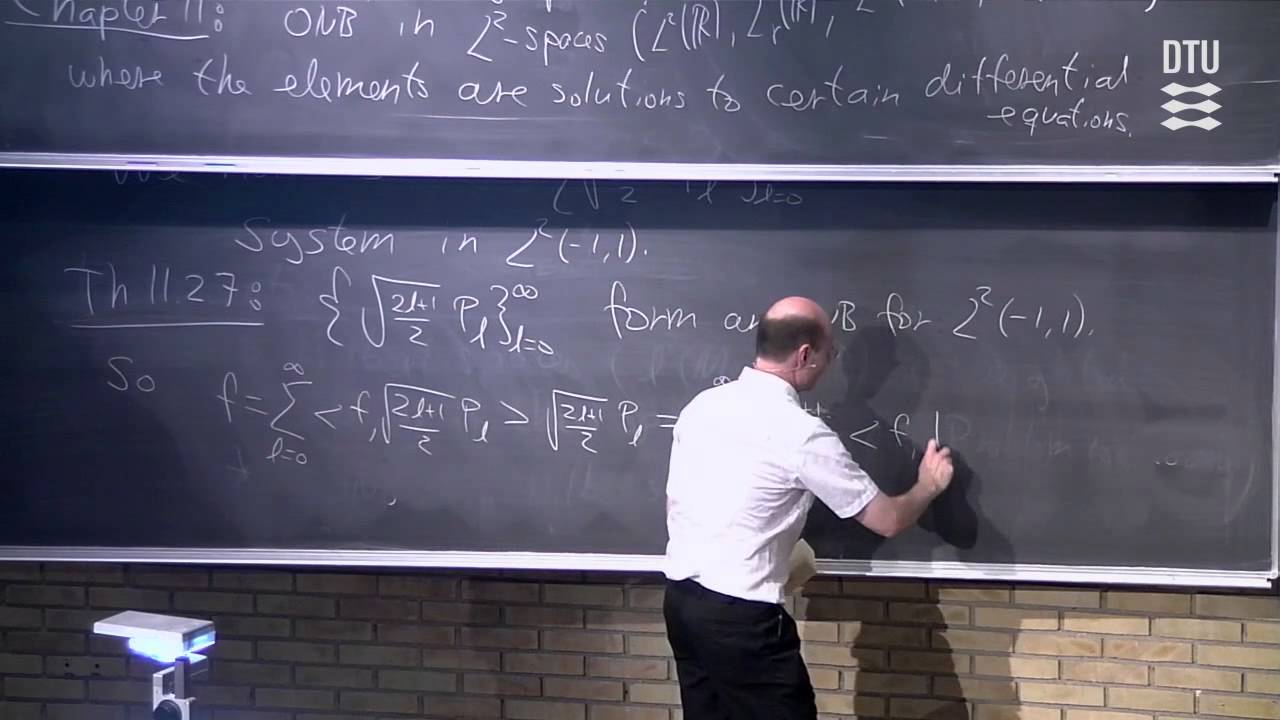 Chapter 11: ONB in L²-spaces (L²(ℝ), L
where the elements are solutions to certain differential
equations.
DTU
2 l=0
System in L²(-1,1).
Th 11.27: {√(2l+1)/2 P_l}_{l=0}^∞ form an B for L²(-1,1).
So f = ∑_{l=0}^∞ < f, √(2l+1)/2 P_l > √(2l+1)/2 P_l = < f,